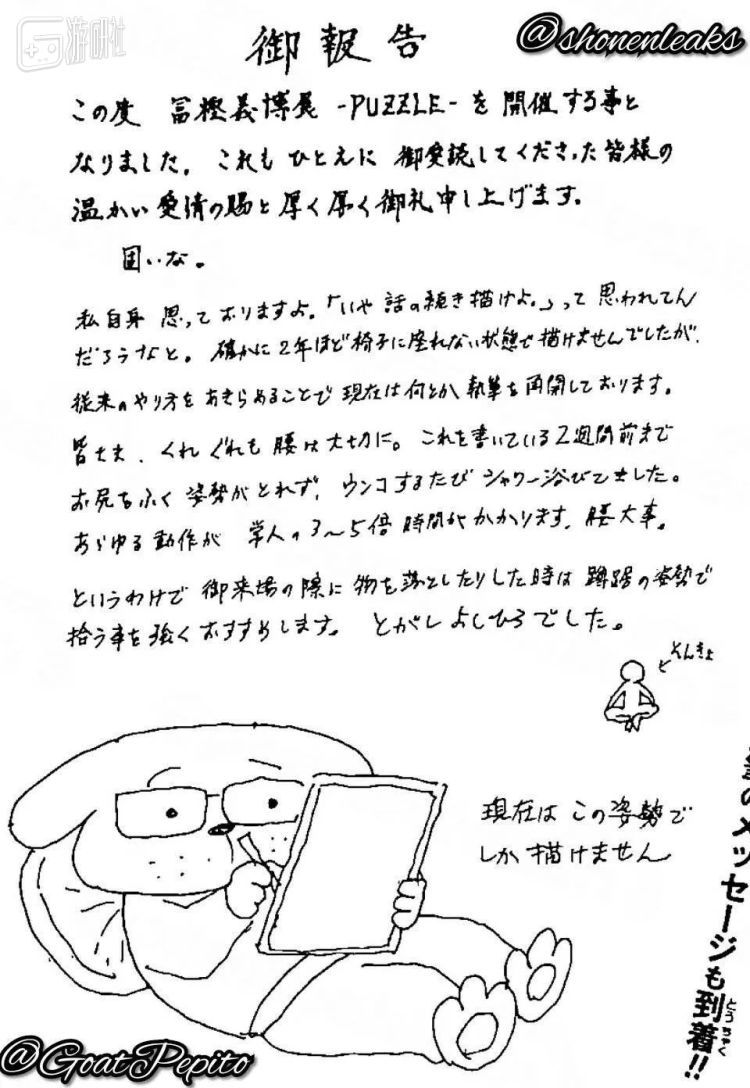 游研社
@shonenleaks
御報告
この度 冨樫義博展 -PUZZLE- を 開催する事と
なりました。これも ひとえに 御愛読してくださった皆様の
温かい愛情の賜と厚く厚く御礼申し上げます。
固いな。
私自身 思っておりますよ。「いや 話の続き描けよ。」って 思われてん
だろうなと。確かに2年ほど椅子に座れない状態で描けませんでしたが、
従来のやり方をあきらめることで現在は何とか執筆を再開しております。
皆さま、くれぐれも腰は大切に。これを書いている2週間前まで
お尻をふく姿勢がとれず、ウンコするたびシャワー浴びてました。
あらゆる動作が 常人の3〜5倍時間がかかります。腰大事。
というわけで御来場の際に物を落としたりした時は蹲踞の姿勢で
拾う事を強くおすすめします。とがしよしひろでした。
そんきょ
現在はこの姿勢で
しか描けません
のメッセージも到着!!
とうちゃく
@GoatPepito